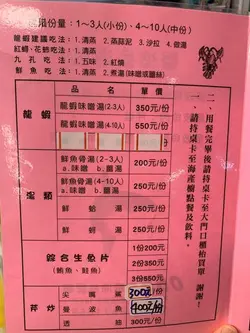 份量：1～3人(小份)、4～10人(中份)
龍蝦建議吃法：1.清蒸 2.蒸蒜泥 3.沙拉 4.鹽湯
紅蟳、花蚵吃法：1.清蒸
九孔吃法：1.五味 2.紅燒
鮮魚吃法：1.清蒸 2.煮湯(味噌或薑絲)
品名 單價
龍蝦
龍蝦味噌湯(2-3人) 350元/份
龍蝦味噌湯(4-10人) 550元/份
湯類
鮮魚骨湯(2-3人) a.味噌 b.薑湯 200元/份
鮮魚骨湯(4-10人) a.味噌 b.薑湯 250元/份
鮮蚵湯 250元/份
鮮蛤湯 250元/份
綜合生魚片
(鮪魚、鮭魚)
1份200元
2份350元
3份550元
芹炒
尖嘴鯊 300元/份
曼波魚 400元/份
透抽 300元/份
一、請持桌卡至海產櫥點餐及飲料。
二、用餐完畢後請持桌卡至大門口櫃枱買單 謝謝！